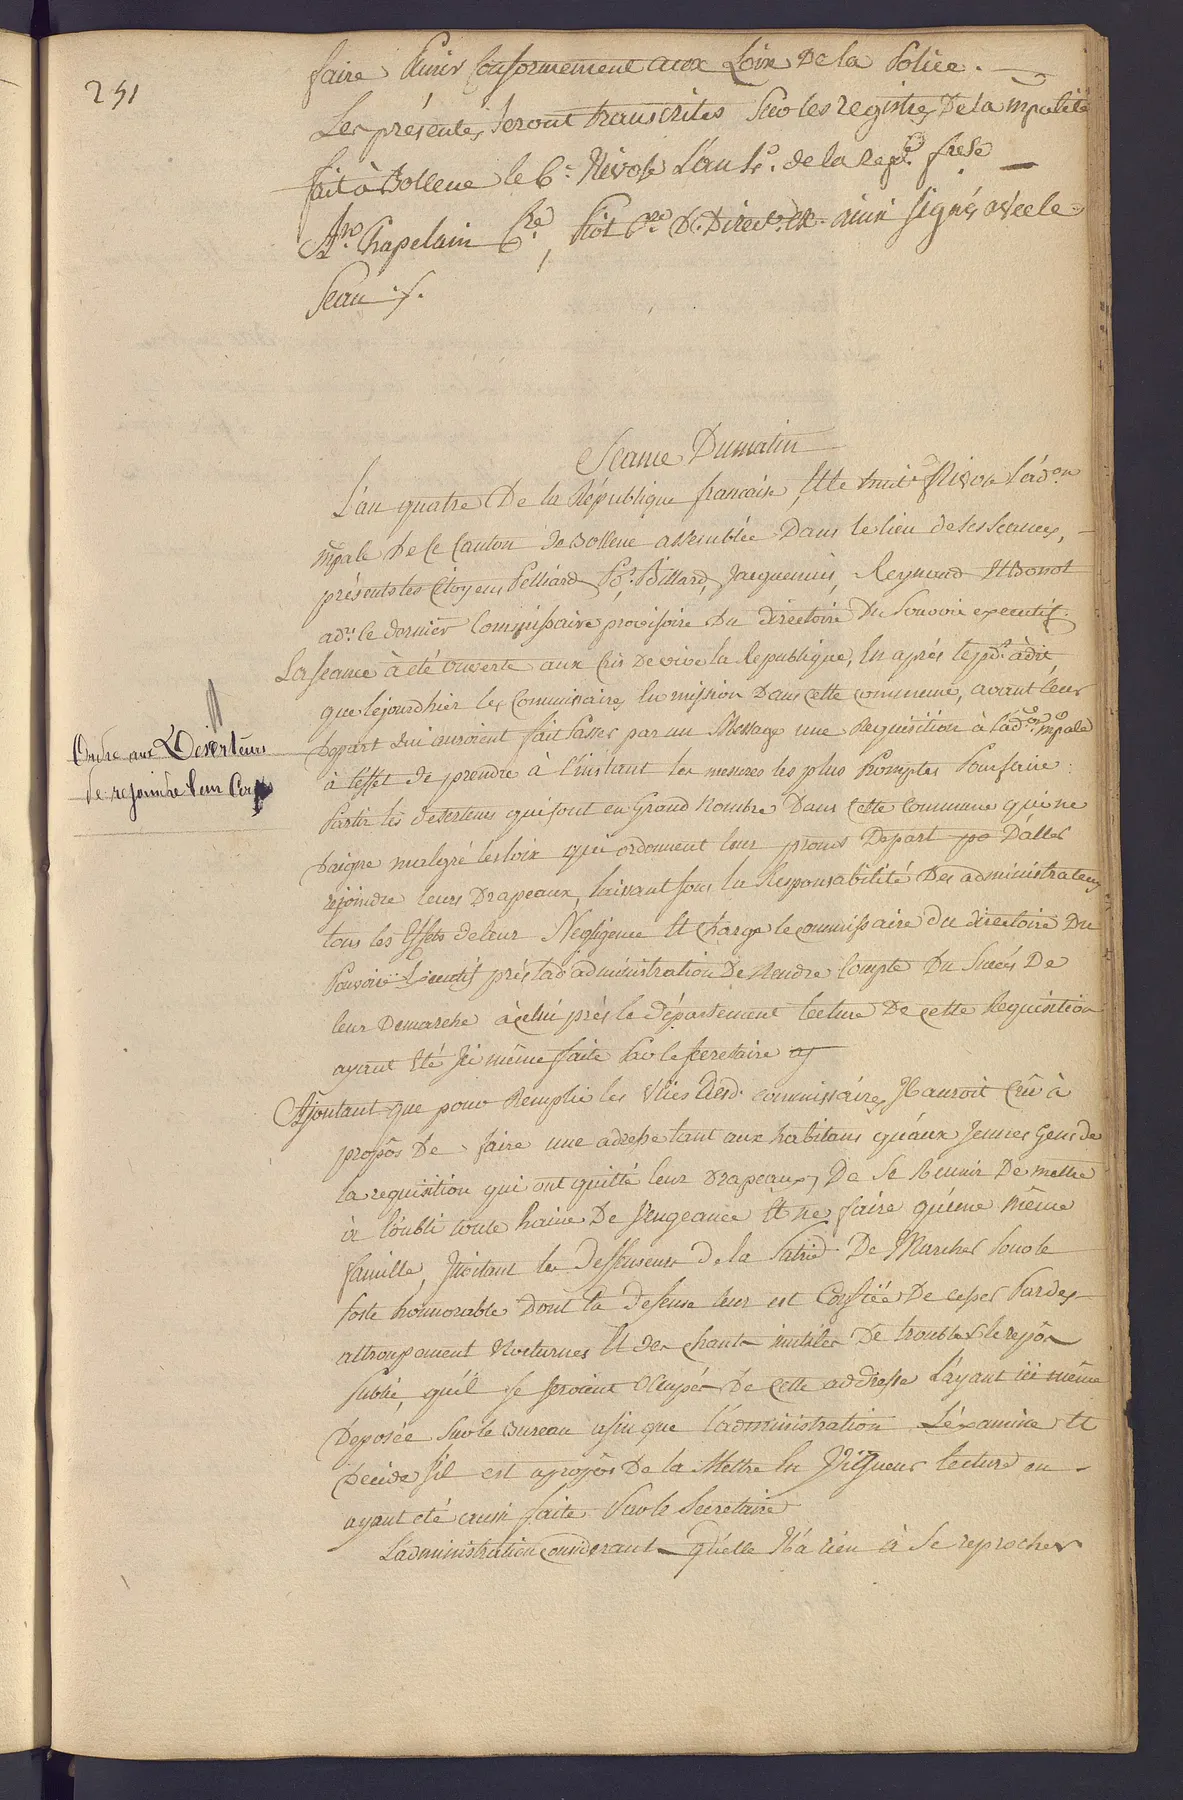 251
faire Punir Conformement aux Loix De la Police. —
Les présentes Seront transcrites Sur les registres De la mpalité
fait à Bollene le 6e. Nivose L'an 4e. de la Repque. frse —
Chapelain Cre, Piot Cre D. Direct. Ex. ainsi signés avec le
Seau ./.
Seance Dumatin
L'an quatre De la République francaise, Et le huit Nivose l'adon
mpale De Ce Canton de Bollene assemblée Dans le lieu de ses seances, —
présents les Citoyens Pelliard Pt. Billard, Jacquemin, Reymond Et Bonot
adt. le dernier Commissaire provisoire Du directoire Du Pouvoir executif.
La seance à été ouverte aux Cris De vive la Republique, En après le pdt. à dit
que lejourdhier les Commissaires En mission Dans cette commune, avant leur
Depart Lui auroient fait Passer par un Message une Requisition à l'adon mpale
à l'effet de prendre à l'instant les mesures les plus Promptes Pour faire
Partir les deserteurs qui sont en Grand Nombre Dans Cette Commune qui ne
Daigne malgré les loix qui ordonnent leur prout Depart D'aller
rejoindre leurs Drapeaux, laissant sous la Responsabilité Des administrateurs
tous les Effets de leur Negligence Et charge le commissaire du directoire Du
Pouvoir Executif près lad administration De Rendre Compte Du Succès De
leur Demarche à celui près le département lecture De cette Requisition
ayant Eté Ici même faite Par le secretaire
Ordre aux Deserteurs
de rejoindre leur Corps
Ajoutant que pour Remplir les Vües Desd. commissaires, Il auroit Crû à
propôs De faire une adresse tant aux habitans qu'aux Jeunes Gens de
la requisition qui ont quitté leur Drapeaux, De Se Reunir De mettre
à l'oubli toute haine De Vengeance Et ne faire qu'une même
famille, Invitant les Deffenseurs de la Patrie De Marcher Sur le
Poste honnorable Dont la defense leur est Confiée De cesser Par des
attroupement Nocturnes Et des chants inutiles De troubler le repôs
Public, qu'il se seroient Occupés De Cette addresse L'ayant ici même
Deposée Sur le Bureau afin que l'administration L'éxamine Et
Decide s'il est apropôs De la Mettre En Vigueur lecture en —
ayant eté aussi faite Par le Secretaire
L'administration Considerant qu'elle N'a rien à Se reprocher